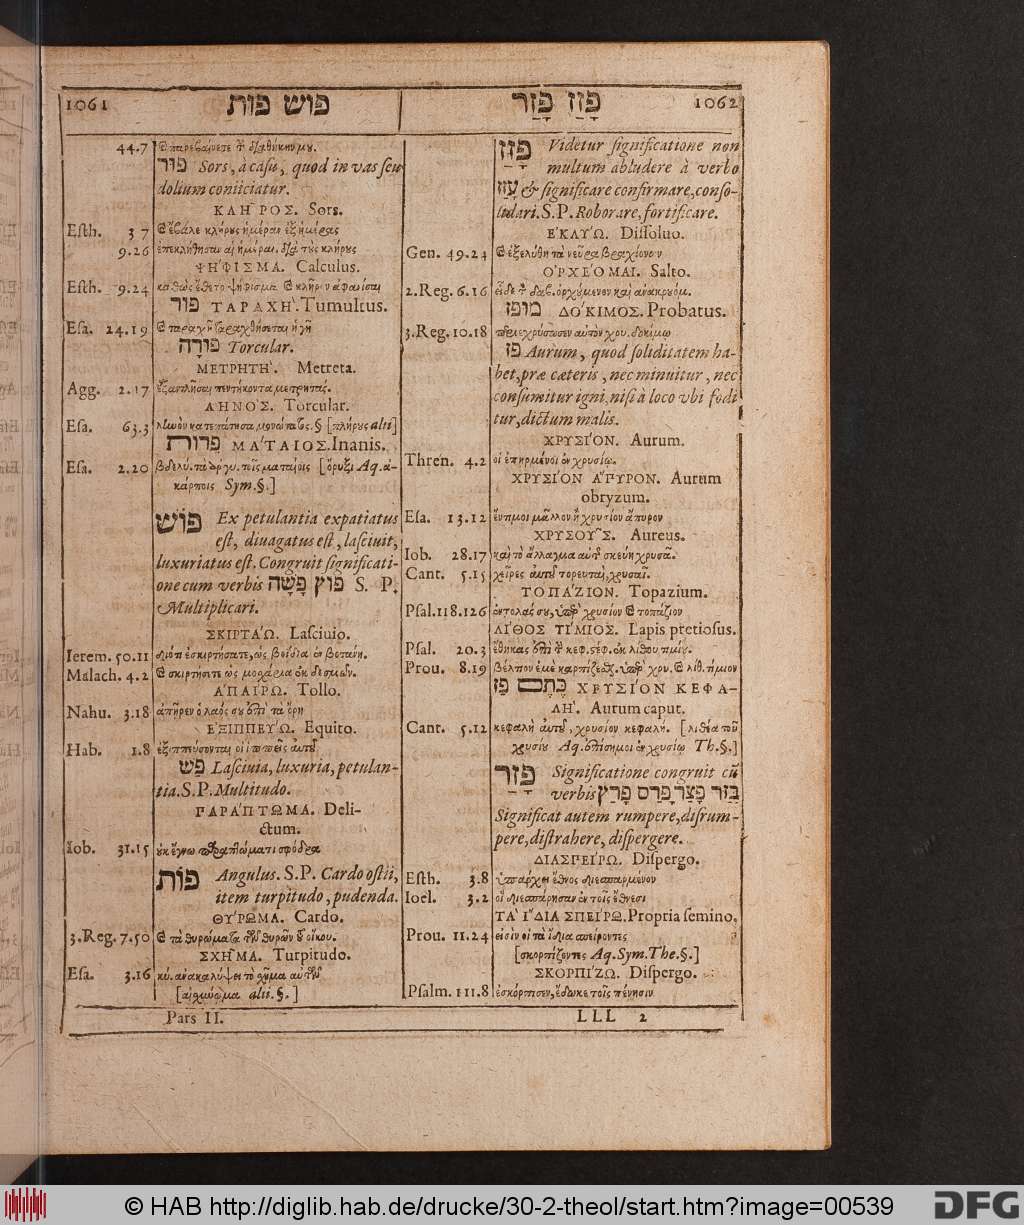 1061 פוש פות
44.7
פור Sors, à casu, quod in vas seu
dolium coniiciatur.
ΚΛΗ͂ΡΟΣ. Sors.
Esth. 3 7 ἔβαλε κλήρους ἡμέραν ἐξ ἡμέρας
9.26 ἐπεκλήθησαν αἱ ἡμέραι, διὰ τοὺς κλήρους
ΨΉΦΙΣΜΑ. Calculus.
Esth. 9.24 καθὼς ἔθετο ψήφισμα
פור ΤΑΡΑΧΉ. Tumultus.
Esa. 24.19
פורה Torcular.
ΜΕΤΡΗΤΉ. Metreta.
Agg. 2.17 ἐξαντλῆσαι πεντήκοντα μετρητάς.
ΛΗΝΌΣ. Torcular.
Esa. 63.3 [πλήρης alii]
פרות ΜΆΤΑΙΟΣ. Inanis.
Esa. 2.20 τοῖς ματαίοις Aq. ἀ-
κάρποις Sym.§.]
פוש Ex petulantia expatiatus
est, diuagatus est, lasciuit,
luxuriatus est. Congruit significati-
one cum verbis פוץ פשה S. P.
Multiplicari.
ΣΚΙΡΤΆΩ. Lasciuio.
Ierem. 50.11 διότι ἐσκιρτήσατε, ὡς βοΐδια ἐν βοτάνῃ.
Malach. 4.2
ἈΠΑΙΡΩ. Tollo.
Nahu. 3.18 ἀπῆρεν ὁ λαός σου ἐπὶ τὰ ὄρη
ἘΞΙΠΠΕΥΩ. Equito.
Hab. 1.8 ἐξιππεύσονται οἱ ἱππεῖς αὐτοῦ
פש Lasciuia, luxuria, petulan-
tia. S.P. Multitudo.
ΠΑΡΆΠΤΩΜΑ. Deli-
ctum.
Iob. 31.15 οὐκ ἔγνω παραπτώματι σφόδρα
פות Angulus. S.P. Cardo ostii,
item turpitudo, pudenda.
ΘΎΡΩΜΑ. Cardo.
3.Reg. 7.50
ΣΧΗ͂ΜΑ. Turpitudo.
Esa. 3.16
alii. §.]
Pars II.
פזז פזר 1062
פזז Videtur significatione non
multum abludere à verbo
עזז & significare confirmare, conso-
lidari. S.P. Roborare, fortificare.
ἘΚΛΎΩ. Dissoluo.
Gen. 49.24 ἐξελύθη τὰ νεῦρα βραχίονων
ὈΡΧΕΌΜΑΙ. Salto.
2.Reg. 6.16
מופז ΔΌΚΙΜΟΣ. Probatus.
3.Reg. 10.18
פז Aurum, quod soliditatem ha-
bet, præ cæteris, nec minuitur, nec
consumitur igni, nisi à loco vbi fodi
tur, dictum malis.
ΧΡΥΣΊΟΝ. Aurum.
Thren. 4.2 οἱ ἐπηρμένοι ἐν χρυσίῳ.
ΧΡΥΣΊΟΝ ἌΠΥΡΟΝ. Aurum
obryzum.
Esa. 13.12 ἔντιμοι μᾶλλον ἢ χρυσίον ἄπυρον
ΧΡΥΣΟΥ͂Σ. Aureus.
Iob. 28.17 καὶ τὸ ἄλλαγμα αὐτῆς σκεύη χρυσᾶ.
Cant. 5.15 χεῖρες αὐτοῦ τορευταὶ, χρυσαῖ.
ΤΟΠΆΖΙΟΝ. Topazium.
Psal. 118.126 ἐντολάς σου, ὑπὲρ χρυσίον τοπάζιον
ΛΊΘΟΣ ΤΊΜΙΟΣ. Lapis pretiosus.
Psal. 20.3
Prou. 8.19
כתם פז ΧΡΥΣΊΟΝ ΚΕΦΑ-
ΛΉ. Aurum caput.
Cant. 5.12 κεφαλὴ αὐτοῦ, χρυσίον κεφαλή. [λιθέα τοῦ
χρυσίου Aq. ἐπίσημοι ἐν χρυσίῳ Th.§.]
פזר Significatione congruit cū
verbis בזר פצר פרס פרץ
Significat autem rumpere, disrum-
pere, distrahere, dispergere.
ΔΙΑΣΠΕΊΡΩ. Dispergo.
Esth. 3.8 ὑπάρχει ἔθνος διεσπαρμένον
Ioel. 3.2 οἳ διεσπάρησαν ἐν τοῖς ἔθνεσι
ΤᾺ Ἴ́ΔΙΑ ΣΠΕΊΡΩ. Propria semino.
Prou. 11.24 εἰσὶν οἱ τὰ ἴδια σπείροντες
[σκορπίζοντες Aq. Sym. The.§.]
ΣΚΟΡΠΊΖΩ. Dispergo.
Psalm. 111.8 ἐσκόρπισεν, ἔδωκε τοῖς πένησιν
LLL 2
© HAB http://diglib.hab.de/drucke/30-2-theol/start.htm?image=00539
DFG